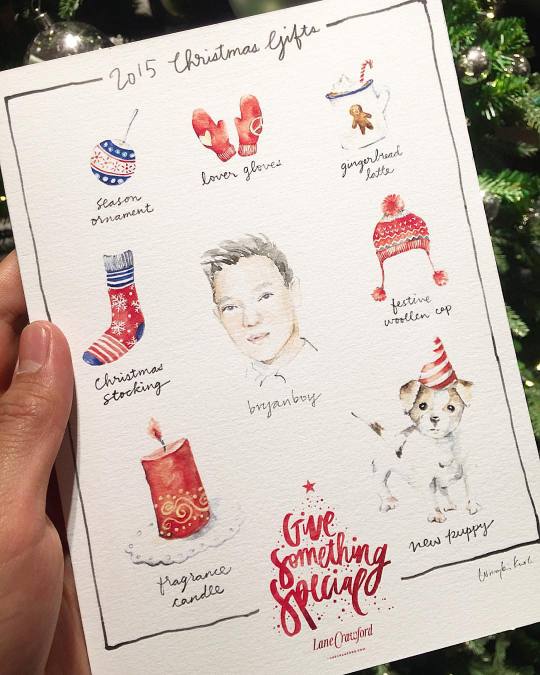 2015 Christmas Gifts
season
ornament
lover gloves
gingerbread
latte
Christmas
Stocking
bryanboy
festive
woollen cap
fragrance
candle
Give
Something
Special
new puppy
Lane Crawford